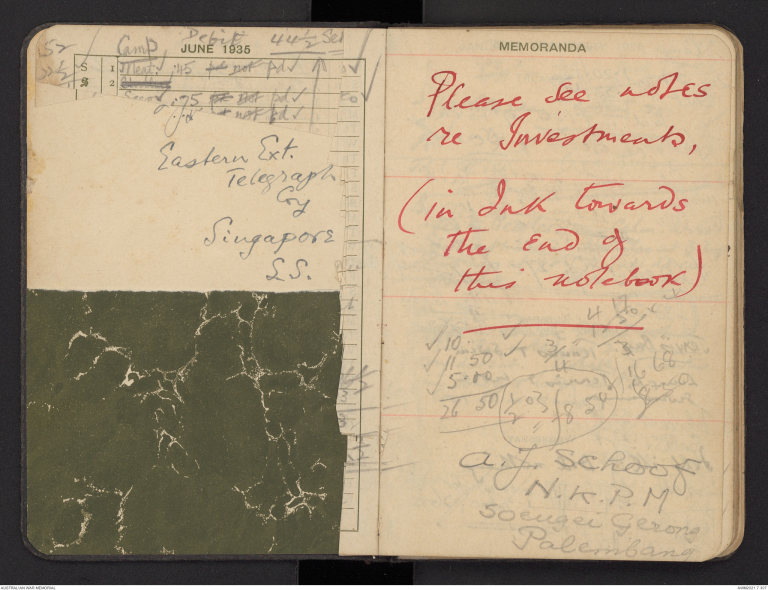 52 Camp, Debit 44½
JUNE 1935
S 1 Meat: .45 not pd ✓
S 2
.75 not pd ✓
Eastern Ext.
Telegraph
Coy
Singapore
S.S.
MEMORANDA
Please see notes
re Investments,
(in Ink towards
the end of
this notebook)
✓ 10.
✓ 11 50
✓ 5.00
26 50
A.J. Schoof
N.K.P.M
Soengei Gerong
Palembang
AUSTRALIAN WAR MEMORIAL